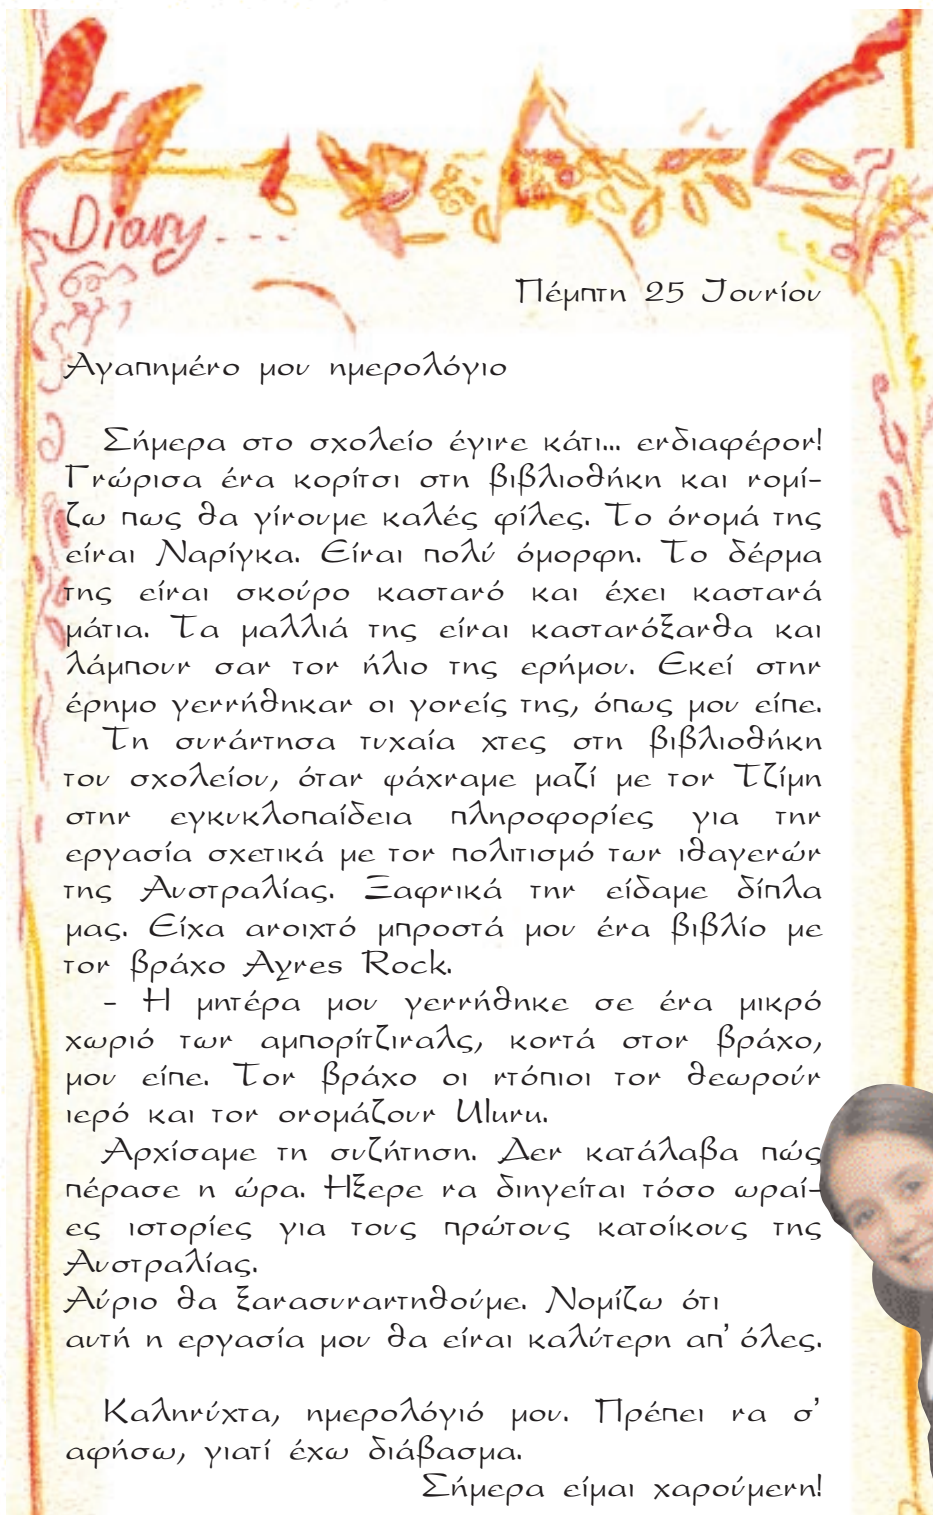 Diary....
Πέμπτη 25 Ιουνίου
Αγαπημένο μου ημερολόγιο
Σήμερα στο σχολείο έγινε κάτι... ενδιαφέρον!
Γνώρισα ένα κορίτσι στη βιβλιοθήκη και νομί-
ζω πως θα γίνουμε καλές φίλες. Το όνομά της
είναι Ναρίγκα. Είναι πολύ όμορφη. Το δέρμα
της είναι σκούρο καστανό και έχει καστανά
μάτια. Τα μαλλιά της είναι καστανόξανθα και
λάμπουν σαν τον ήλιο της ερήμου. Εκεί στην
έρημο γεννήθηκαν οι γονείς της, όπως μου είπε.
Τη συνάντησα τυχαία χτες στη βιβλιοθήκη
του σχολείου, όταν ψάχναμε μαζί με τον Τζίμη
στην εγκυκλοπαίδεια πληροφορίες για την
εργασία σχετικά με τον πολιτισμό των ιθαγενών
της Αυστραλίας. Ξαφνικά την είδαμε δίπλα
μας. Είχα ανοιχτό μπροστά μου ένα βιβλίο με
τον βράχο Ayres Rock.
- Η μητέρα μου γεννήθηκε σε ένα μικρό
χωριό των αμπορίτζιναλς, κοντά στον βράχο,
μου είπε. Τον βράχο οι ντόπιοι τον θεωρούν
ιερό και τον ονομάζουν Uluru.
Αρχίσαμε τη συζήτηση. Δεν κατάλαβα πώς
πέρασε η ώρα. Ηξερε να διηγείται τόσο ωραί-
ες ιστορίες για τους πρώτους κατοίκους της
Αυστραλίας.
Αύριο θα ξανασυναντηθούμε. Νομίζω ότι
αυτή η εργασία μου θα είναι καλύτερη απ' όλες.
Καληνύχτα, ημερολόγιό μου. Πρέπει να σ'
αφήσω, γιατί έχω διάβασμα.
Σήμερα είμαι χαρούμενη!